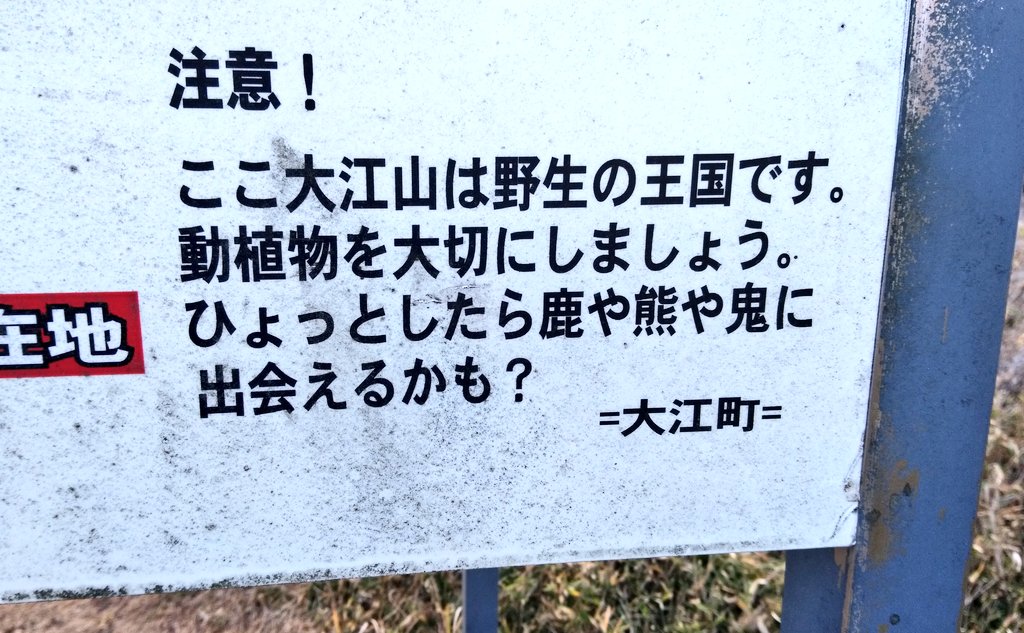 注意！
ここ大江山は野生の王国です。
動植物を大切にしましょう。
ひょっとしたら鹿や熊や鬼に
出会えるかも？
=大江町=
在地